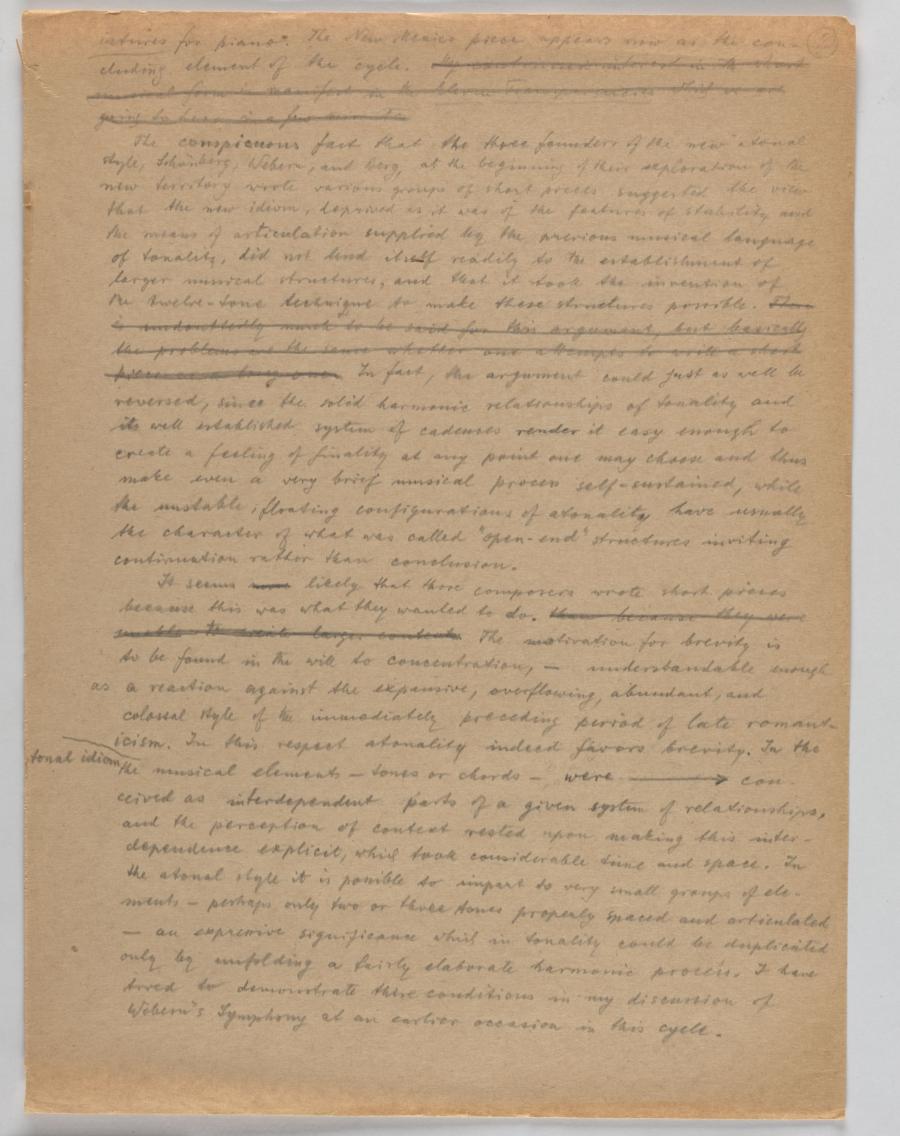 iatures for piano". The New Mexico piece appears now as the con- 2
cluding element of the cycle. My continued interest in the short
musical form is manifest in the Eleven Transparencies which we are
going to hear in a few minutes.
The conspicuous fact that the three founders of the new atonal
style, Schönberg, Webern, and Berg, at the beginning of their exploration of the
new territory wrote various groups of short pieces suggested the view
that the new idiom, deprived as it was of the features of stability and
the means of articulation supplied by the previous musical language
of tonality, did not lend itself readily to the establishment of
larger musical structures, and that it took the invention of
the twelve-tone technique to make these structures possible. There
is undoubtedly much to be said for this argument, but basically
the problems are the same whether one attempts to write a short
piece or a long one. In fact, the argument could just as well be
reversed, since the solid harmonic relationships of tonality and
its well established system of cadences render it easy enough to
create a feeling of finality at any point one may choose and thus
make even a very brief musical process self-sustained, while
the unstable, floating configurations of atonality have usually
the character of what was called "open-end" structures inviting
continuation rather than conclusion.
It seems more likely that those composers wrote short pieces
because this was what they wanted to do. than because they were
unable to create larger contexts. The motivation for brevity is
to be found in the will to concentration, — understandable enough
as a reaction against the expansive, overflowing, abundant, and
colossal style of the immediately preceding period of late romant-
icism. In this respect atonality indeed favors brevity. In the
tonal idiom the musical elements — tones or chords — were con-
ceived as interdependent parts of a given system of relationships,
and the perception of context rested upon making this inter-
dependence explicit, which took considerable time and space. In
the atonal style it is possible to impart to very small groups of ele-
ments — perhaps only two or three tones properly spaced and articulated
— an expressive significance which in tonality could be duplicated
only by unfolding a fairly elaborate harmonic process. I have
tried to demonstrate these conditions in my discussion of
Webern's Symphony at an earlier occasion in this cycle.